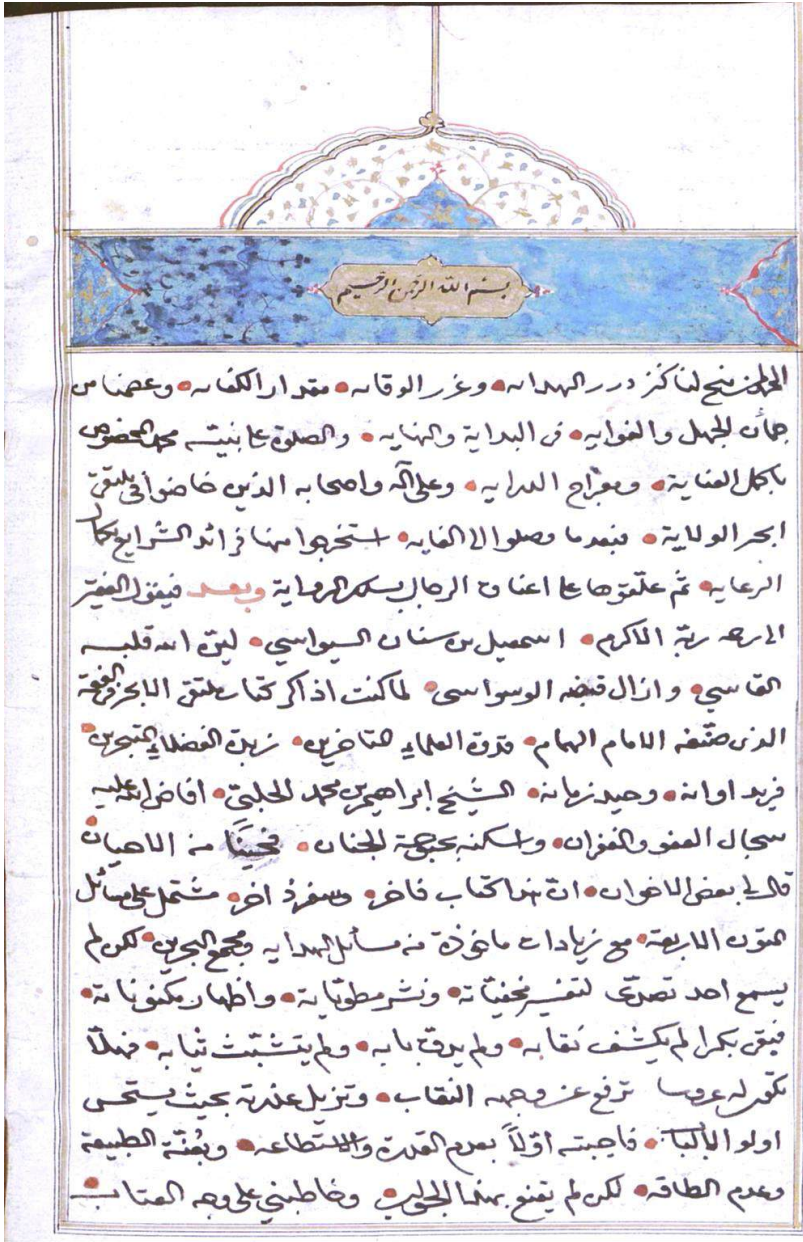 بسم الله الرحمن الرحيم
الحمد لمن منح لنا كنز درر الهدايه وغرر الوقايه مقدار الكفايه وعصمنا من
الجهل والغوايه فى البداية والنهايه والصلوة على نبيه محمد المخصوص
باكمل العناية ومعراج الدرايه وعلى آله واصحابه الذين خاضوا فى ملتقى
ابحر الولاية فبعد ما وصلوا الى الغايه استخرجوا منها فرائد الشرايع
الرعايه ثم علقوها على اعناق الرجال بسلك الرواية وبعد فيقول الفقير
الى رحمة ربه الاكرم اسمعيل بن سنان السيواسي لين الله قلبه
القاسي وازال قبضه الوسواسى لما كنت اذاكر كتاب ملتقى الابحر فى الفقه
الذى صنفه الامام الهمام قدوة العلماء المتاخرين زبدة الفضلاء المتبحرين
فريد اوانه وحيد زمانه الشيخ ابراهيم بن محمد الحلبى افاض الله عليه
سجال العفو والغفران واسكنه بحبوحة الجنان فحينًا من الاحيان
قال لى بعض الاخوان ان هذا كتاب فاخر وسفر ذاخر مشتمل على مسائل
المتون الاربعة مع زيادات ماخوذة من مسائل الهدايه ومجمع البحرين لكن لم
يسمع احد تصدى لتفسير مخفياته ونشر مطوياته واظهار مكنوناته
فبقى بكرا لم يكشف نقابه ولم يدق بابه ولم يتشبث ثيابه فهلا
تكون له عروسا ترفع عن وجهه النقاب وتزيل عذرته بحيث يستحسن
اولو الالباب فاجبته اولاً بعدم القدرة والاستطاعه الطبيعة
وعدم الطاقه لكن لم يقنع بهذا الجواب وخاطبنى على وجه العتاب